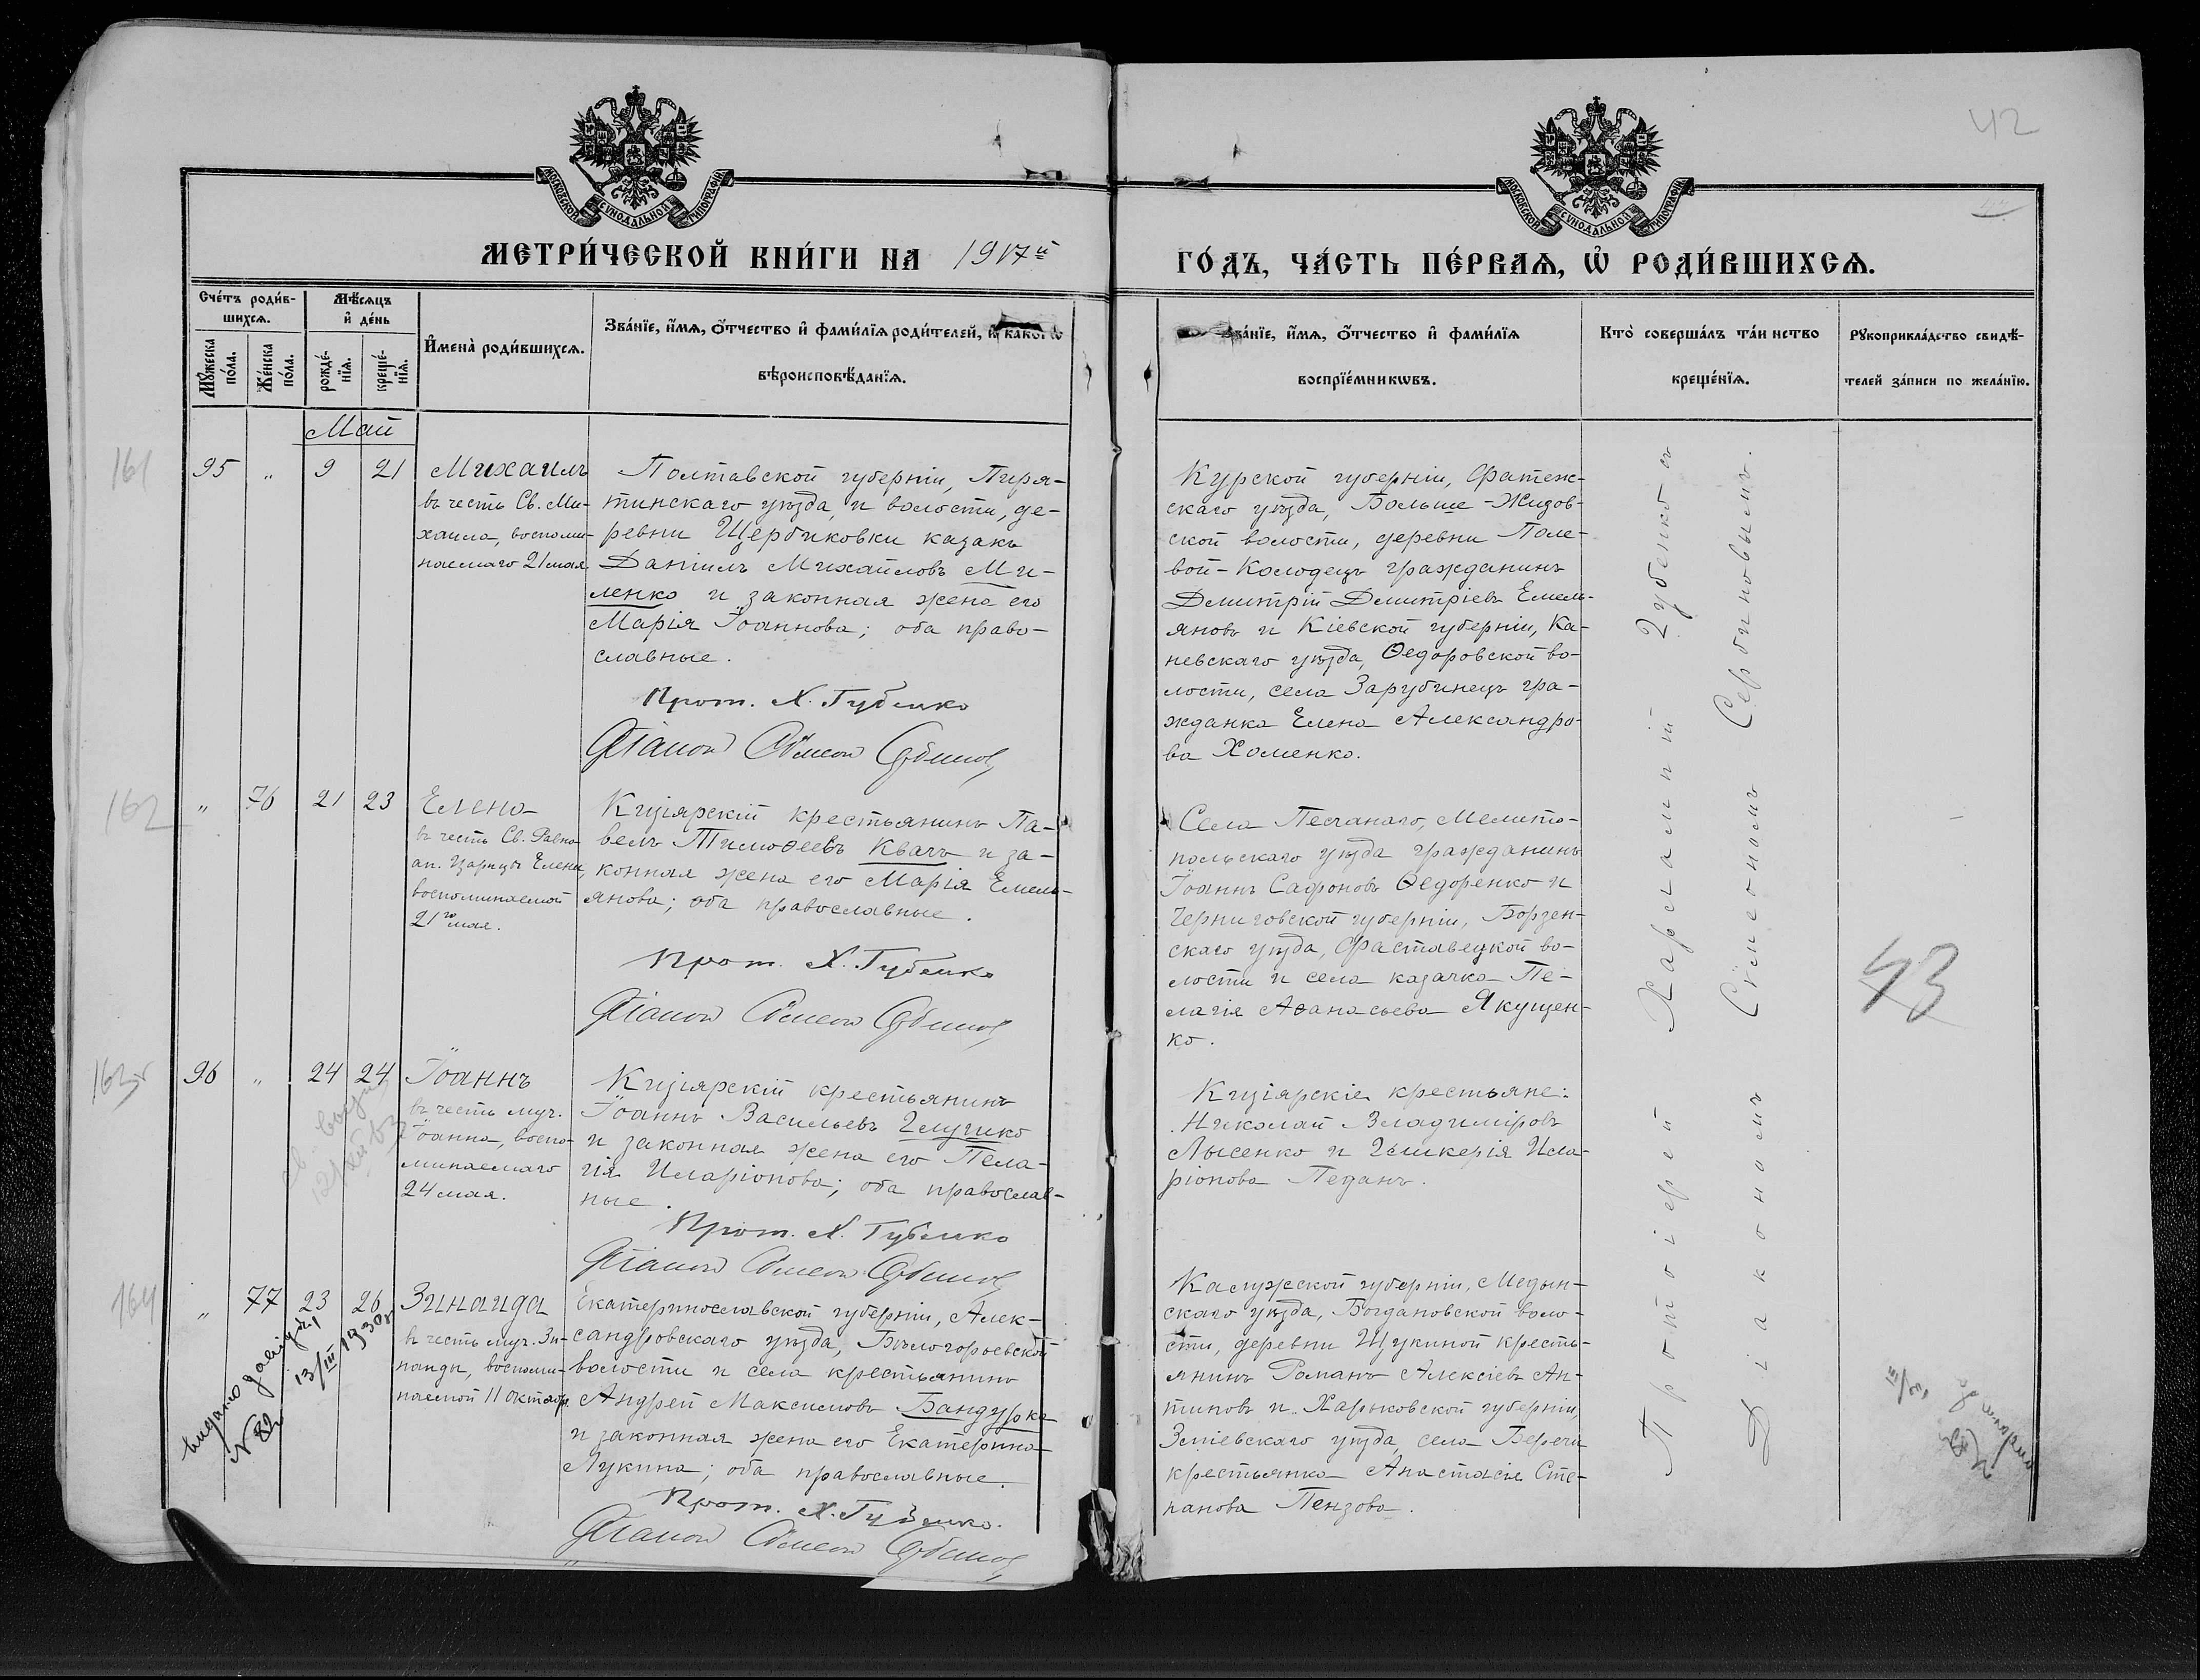 42
МОСКОВСКОЙ СѴНОДАЛЬНОЙ ТИПОГРАФІИ
МОСКОВСКОЙ СѴНОДАЛЬНОЙ ТИПОГРАФІИ
МЕТРИ́ЧЕСКОЙ КНИ́ГИ НА 1917й
ГО́ДЪ, ЧА́СТЬ ПЕ́РВАѦ, Ѡ҆ РОДИ́ВШИХСѦ.
Сче́тъ роди́в-
шихсѧ.
Мꙋ́жеска
по́ла.
Же́нска
по́ла.
Мѣ́сѧцъ
и҆ де́нь
рожде́-
нїѧ.
креще́-
нїѧ.
И҆мена̀ роди́вшихсѧ.
Зва́нїе, и҆́мѧ, о҆́тчество и҆ фами́лїѧ роди́телей, и҆ како́гѡ
вѣроисповѣ́данїѧ.
Зва́нїе, и҆́мѧ, о҆́тчество и҆ фами́лїѧ
воспрїе́мникѡвъ.
Кто̀ соверша́лъ та́инство
креще́нїѧ.
Рꙋкоприкла́дство свидѣ́-
телей за́писи по жела́нїю.
Май
161
95 " 9 21
Михаилъ
въ честь Св. Ми-
хаила, воспоми-
наемаго 21 мая.
Полтавской губерніи, Пиря-
тинскаго уѣзда, и волости, де-
ревни Щербиковки казакъ
Даніилъ Михайловъ Ми-
ленко и законная жена его
Марія Іоаннова; оба право-
славные.
Прот. Х. Губенко
Діаконъ Сѵмеонъ Сербиновъ
Курской губерніи, Фатеж-
скаго уѣзда, Больше-Жидов-
ской волости, деревни Поле-
вой-Колодецъ гражданинъ
Димитрій Димитріевъ Емель-
яновъ и Кіевской губерніи, Ка-
невскаго уѣзда, Ѳедоровской во-
лости, села Зарубинецъ гра-
жданка Елена Александро-
ва Хоменко.
162
" 76 21 23
Елена
въ честь Св. Равно-
ап. Царицы Елены,
воспоминаемой
21го мая.
Кизіярскій крестьянинъ Па-
велъ Тимоѳеевъ Квачъ и за-
конная жена его Марія Емель-
янова; оба православные.
Прот. Х. Губенко
Діаконъ Сѵмеонъ Сербиновъ
Села Песчанаго, Мелито-
польскаго уѣзда гражданинъ
Іоаннъ Сафоновъ Ѳедоренко и
Черниговской губерніи, Борзен-
скаго уѣзда, Фастовецкой во-
лости и села казачка Пе-
лагія Аѳанасьева Якущен-
ко.
43
163
96 " 24 24
Іоаннъ
въ честь муч.
Іоанна, воспо-
минаемаго
24 мая.
Кизіярскій крестьянинъ
Іоаннъ Васильевъ
и законная жена его Пела-
гія Иларіонова; оба православ-
ные.
Прот. Х. Губенко
Діаконъ Сѵмеонъ Сербиновъ
Кизіярскіе крестьяне:
Николай Владиміровъ
Лысенко и Гликерія Ила-
ріонова Педанъ.
164
" 77 23 26
Зинаида
въ честь муч. Зи-
наиды, воспоми-
наемой 11 октябр.
Екатеринославской губерніи, Алек-
сандровскаго уѣзда, Бѣлогорьевской
волости и села крестьянинъ
Андрей Максимовъ Бандурка
и законная жена его Екатерина
Лукина; оба православные.
Прот. Х. Губенко.
Діаконъ Сѵмеонъ Сербиновъ
Калужской губерніи, Медын-
скаго уѣзда, Богдановской воло-
сти, деревни Щукиной кресть-
янинъ Романъ Алексіевъ Ан-
типовъ и Харьковской губерніи,
Зміевскаго уѣзда, села Береки
крестьянка Анастасія Сте-
панова Пензова.
Протоіерей Харлампій Губенко съ
Діакономъ Сѵмеономъ Сербиновымъ.
видано
13/III 1930
N 82